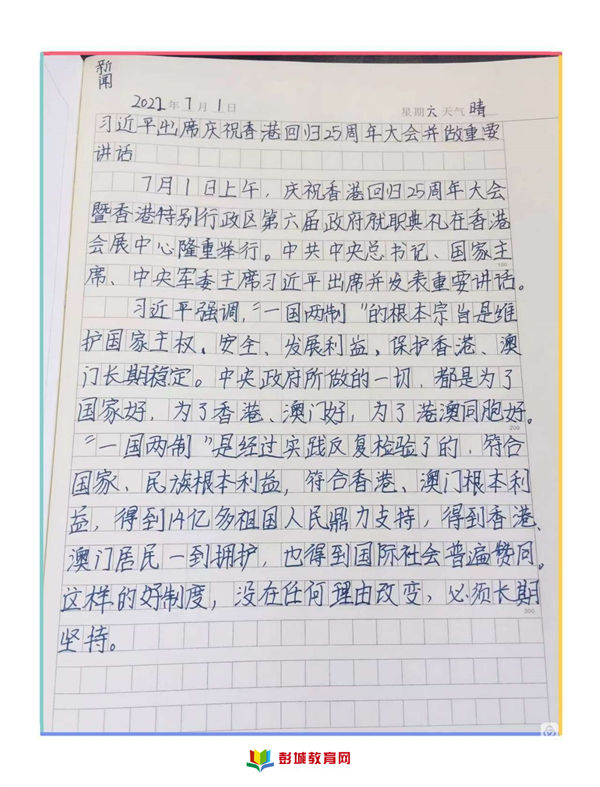 新闻
2022年7月1日 星期六 天气 晴
习近平出席庆祝香港回归25周年大会并做重要
讲话
7月1日上午，庆祝香港回归25周年大会
暨香港特别行政区第六届政府就职典礼在香港
会展中心隆重举行。中共中央总书记、国家主
席、中央军委主席习近平出席并发表重要讲话。
习近平强调，“一国两制”的根本宗旨是维
护国家主权、安全、发展利益，保护香港、澳
门长期稳定。中央政府所做的一切，都是为了
国家好，为了香港、澳门好，为了港澳同胞好。
“一国两制”是经过实践反复检验了的，符合
国家、民族根本利益，符合香港、澳门根本利
益，得到14亿多祖国人民鼎力支持，得到香港、
澳门居民一到拥护，也得到国际社会普遍赞同。
这样的好制度，没在任何理由改变，必须长期
坚持。
彭城教育网